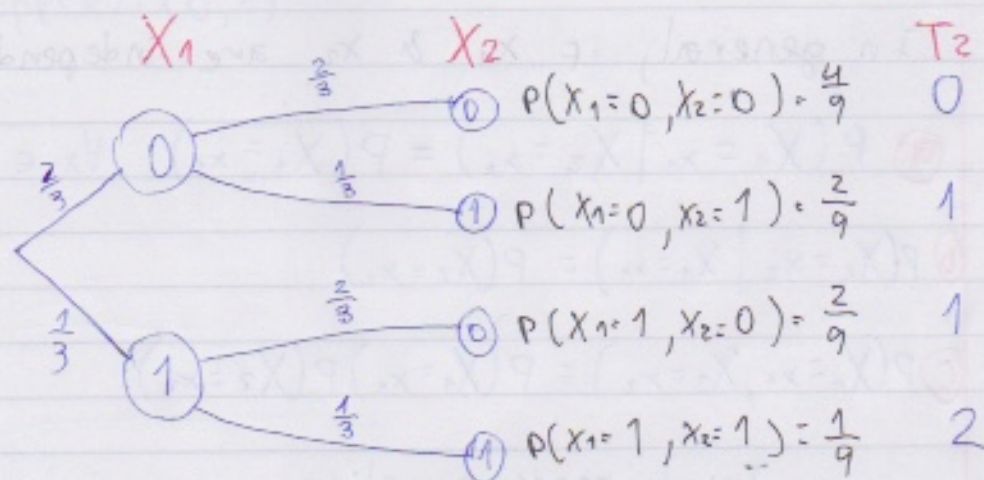 X1 X2 T2
2/3 0 P(X1=0, X2=0) = 4/9 0
0
2/3 1/3 1 P(X1=0, X2=1) = 2/9 1
1/3 2/3 0 P(X1=1, X2=0) = 2/9 1
1
1/3 1 P(X1=1, X2=1) = 1/9 2